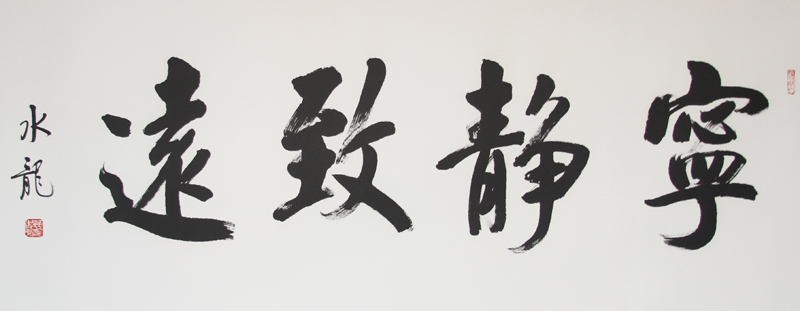 寧静致遠
水龍